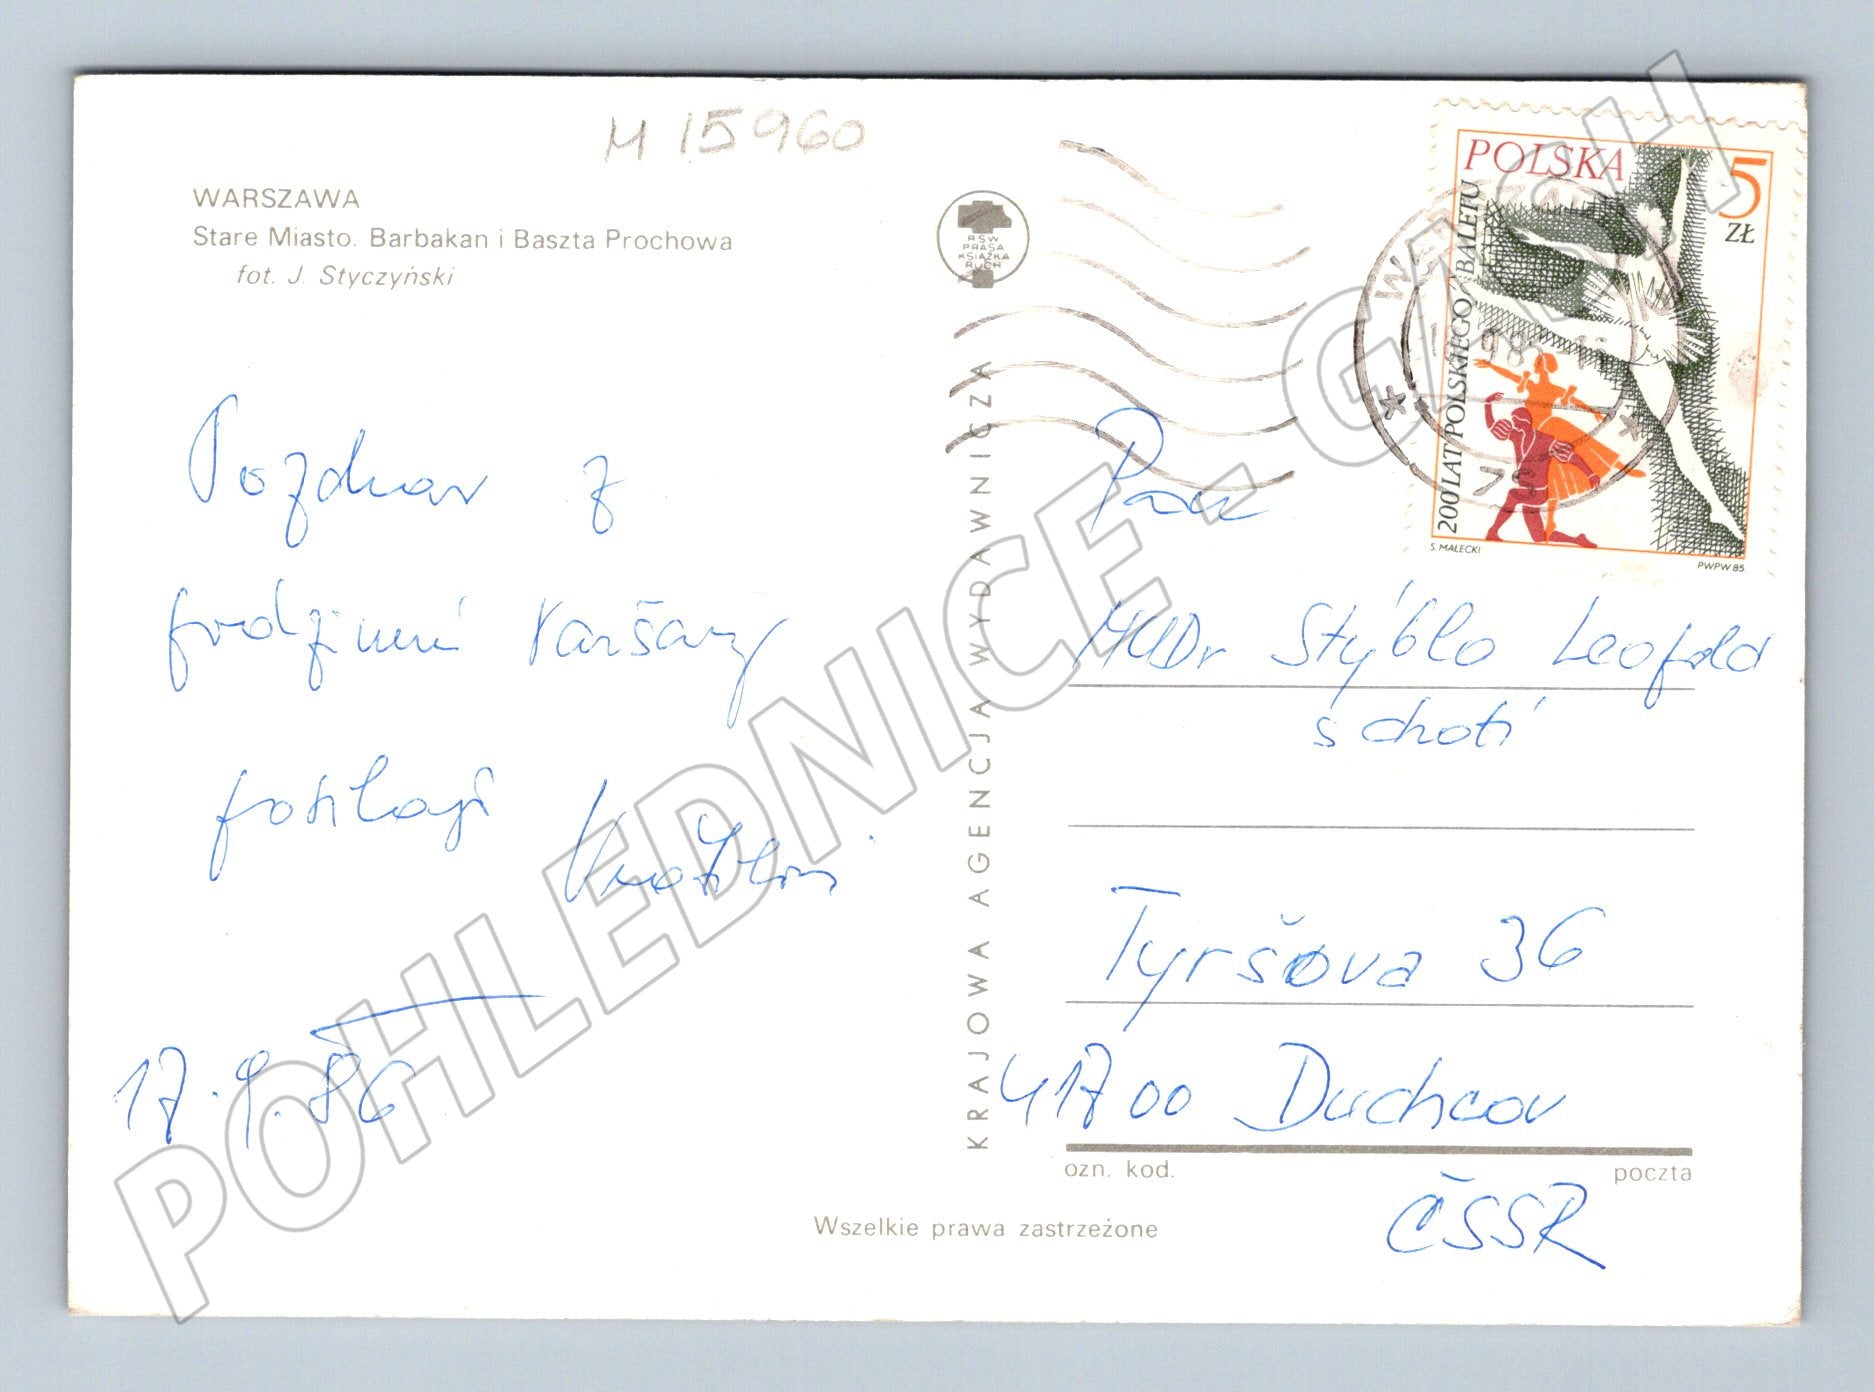 M 15960
WARSZAWA
Stare Miasto. Barbakan i Baszta Prochowa
fot. J. Styczyński
Pozdrav z
podzimní Varšavy
posílají
17.9.86
RSW
PRASA
KSIĄŻKA
RUCH
KRAJOWA AGENCJA WYDAWNICZA
POLSKA
5
ZŁ
200 LAT POLSKIEGO BALETU
S. MAŁECKI
PWPW 85.
Pan
MUDr Stýblo Leopold
s chotí
Tyršova 36
41700 Duchcov
ozn. kod.
poczta
ČSSR
Wszelkie prawa zastrzeżone
POHLEDNICE - GASH